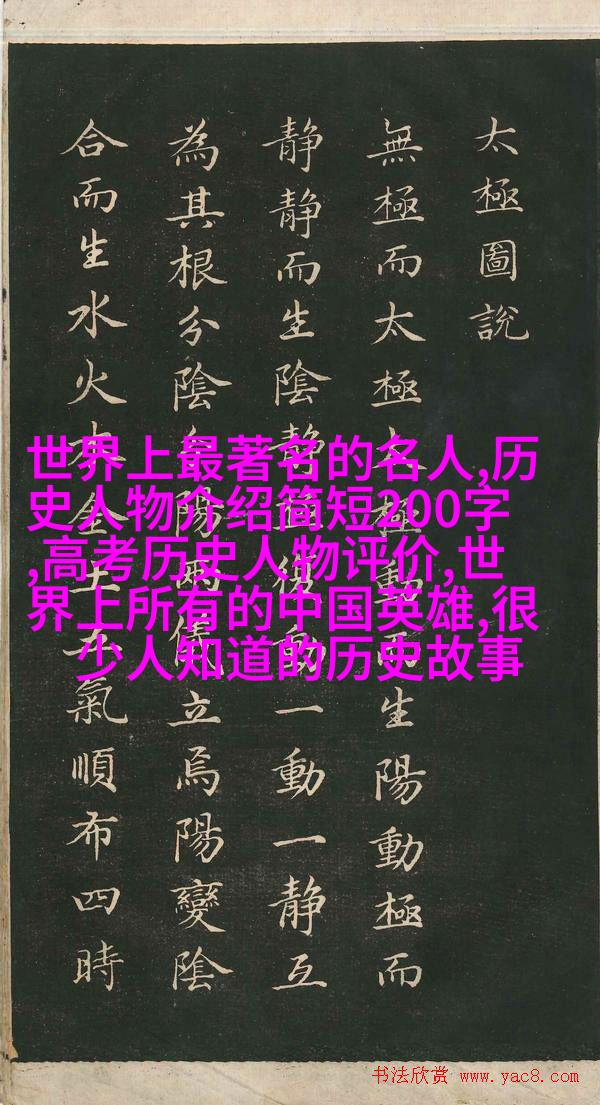 太極圖說
無極而太極太極動而生陽動極而
静静而生陰静極復動一動一静互
為其根分陰分陽兩儀立焉陽變陰
合而生水火木金土五氣順布四時
世界上最著名的名人,历
史人物介绍简短200字
,高考历史人物评价,世
界上所有的中国英雄,很
少人知道的历史故事
书法欣赏 www.yac8.com